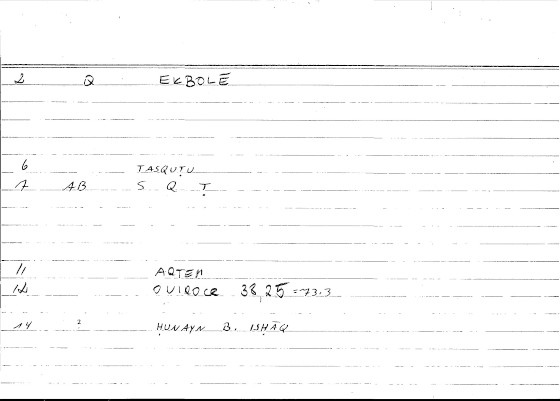 2 Q EKBOLĒ
6 TASQUṬU
7 AB S Q Ṭ
11 AQTEM
12 QUIROCR 38,25 = 73.3
14 2 ḤUNAYN B. ISḤĀQ